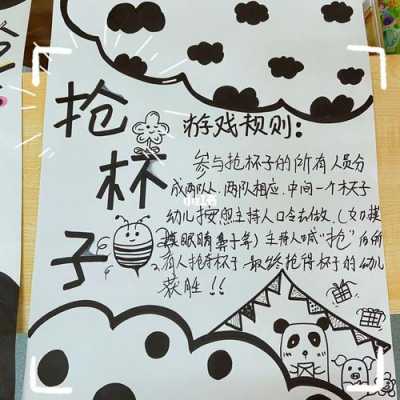 抢杯子
游戏规则:
参与抢杯子的所有人员分
成两队,两队相应,中间一个杯子
幼儿按照主持人口令去做,(如摸
摸眼睛鼻子等)主持人喊“抢”
有人抢夺杯子 最终抢得杯子的幼儿
获胜!!
小红书